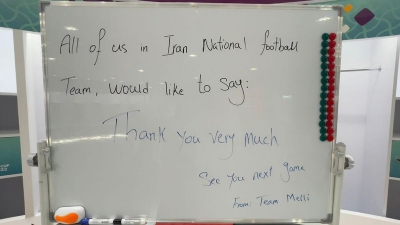 All of us in Iran National football
Team, would like to say:
Thank you very much
See you next game
From: Team Melli